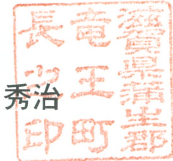 滋賀県蒲生郡
竜王町
長之印
秀治